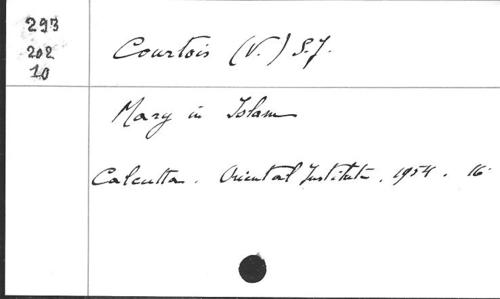 293
202
10
Courtois (V.) S.J.
Mary in Islam
Calcutta. Oriental Institute. 1954. 16